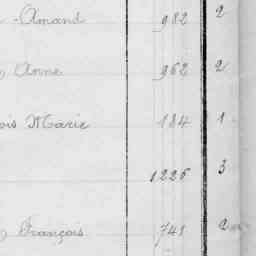 -Amand 982 2
Anne 962 2
ois Marie 184 1
1226 3
François 741 2